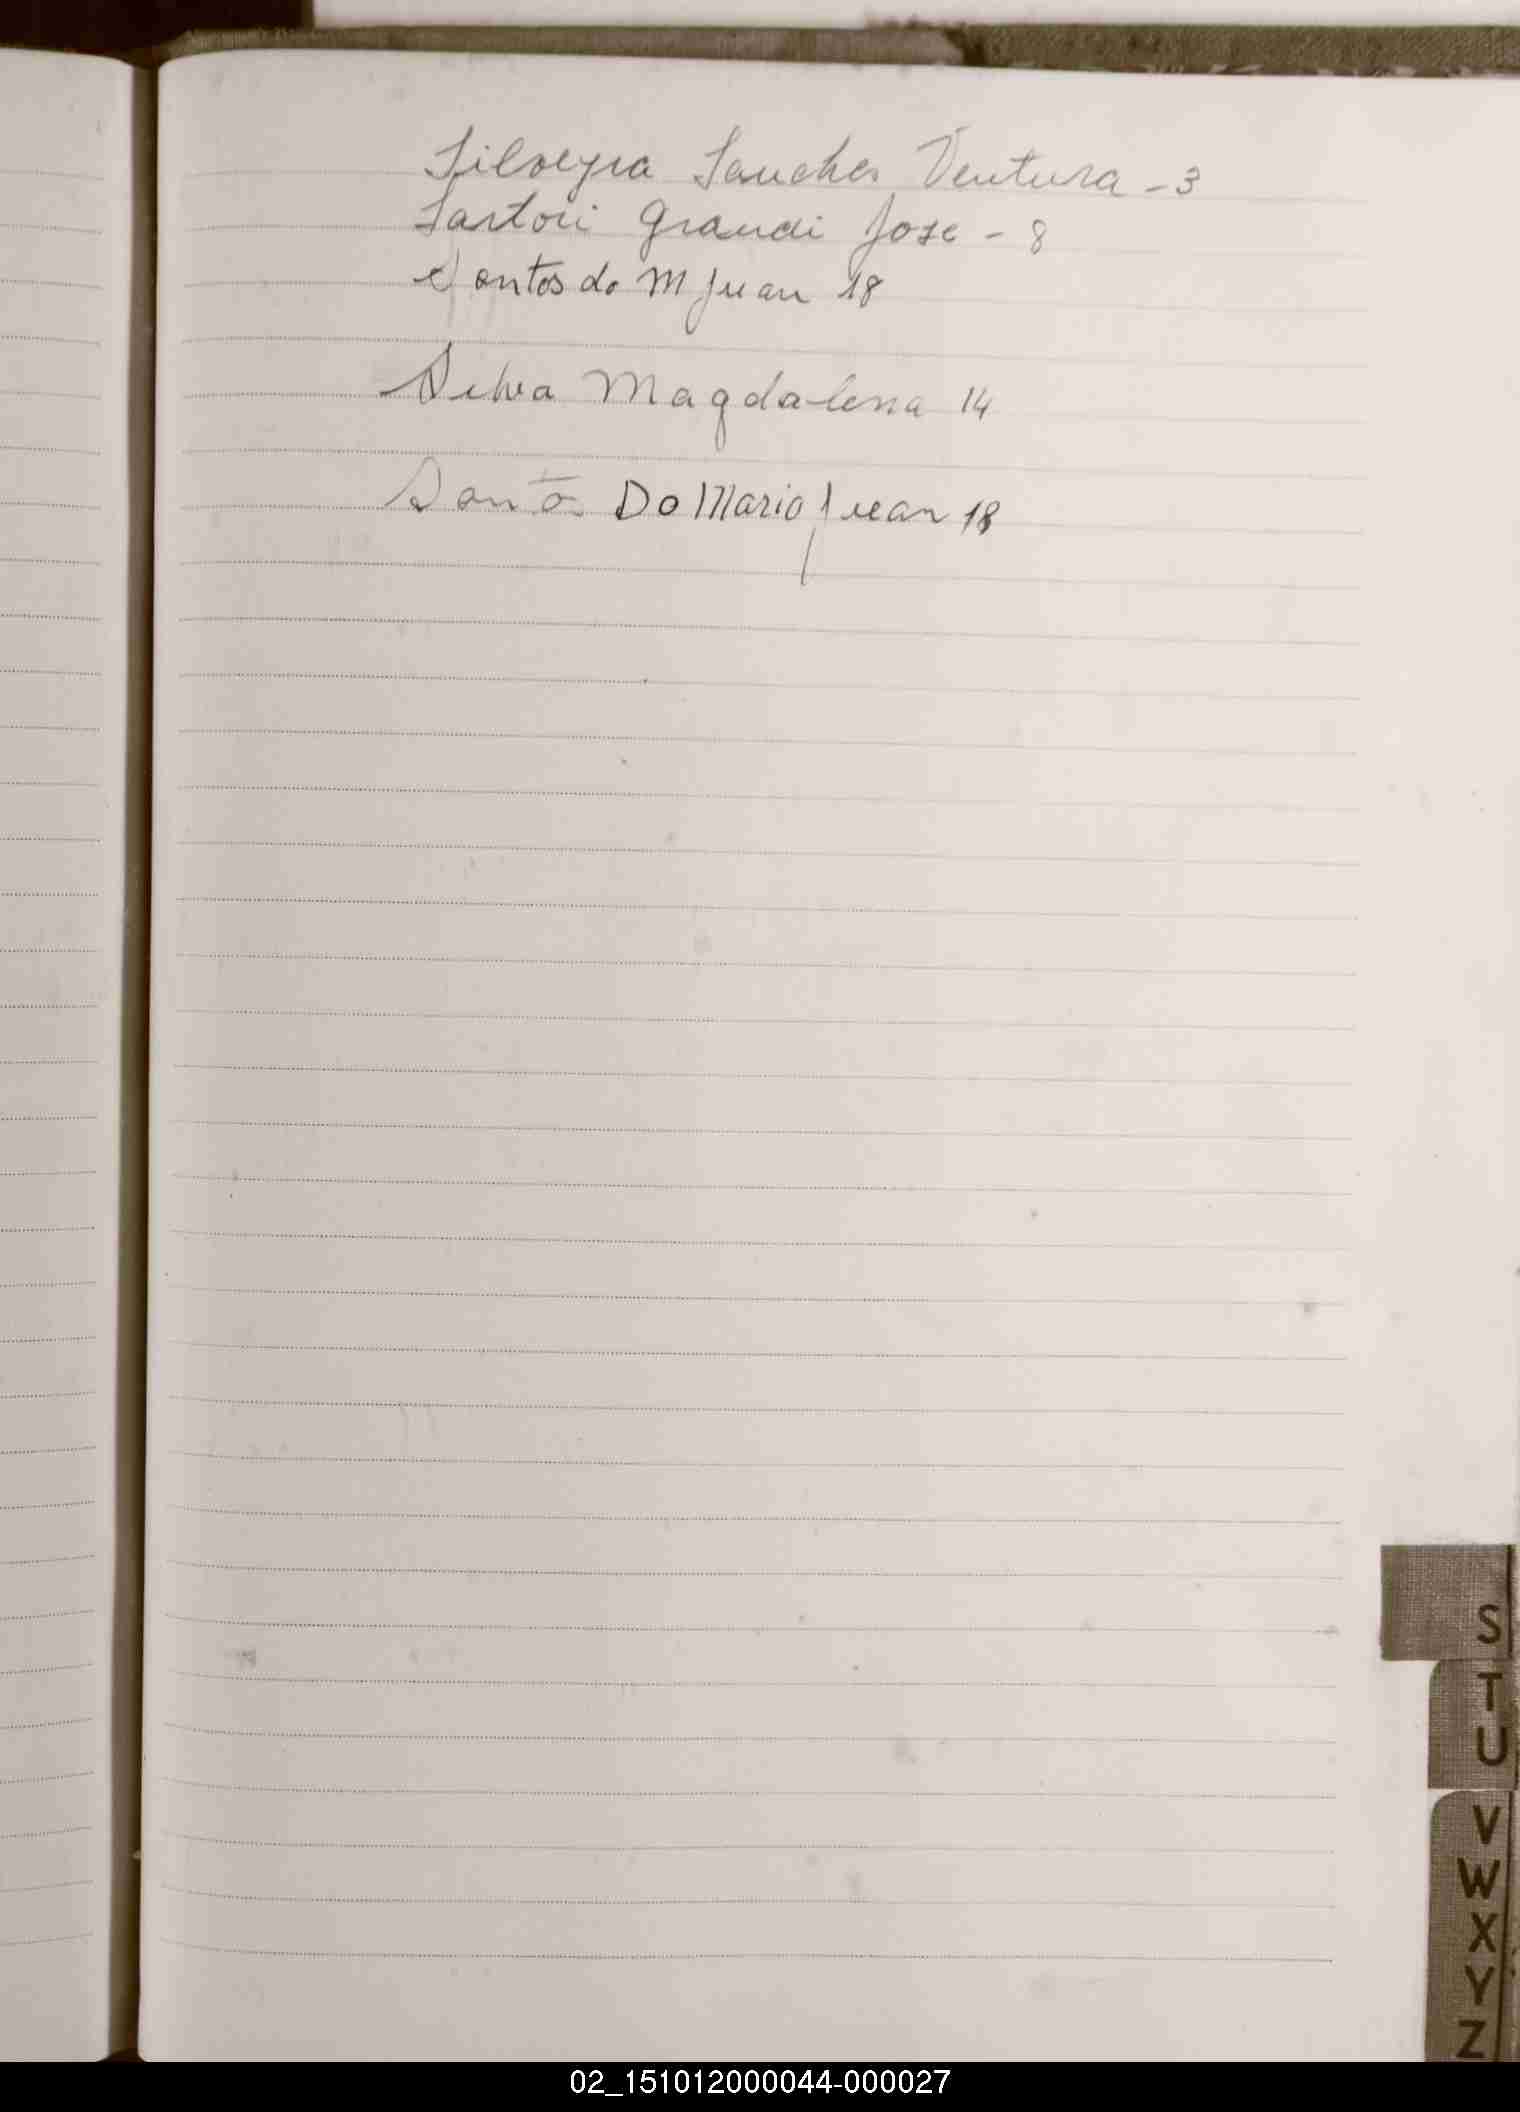 Silveyra Sanches Ventura - 3
Sartori Grandi Jose - 8
Santos do M Juan 18
Silva Magdalena 14
Santos Do Mario Juan 18
S
T
U
V
W
X
Y
Z
02_151012000044-000027